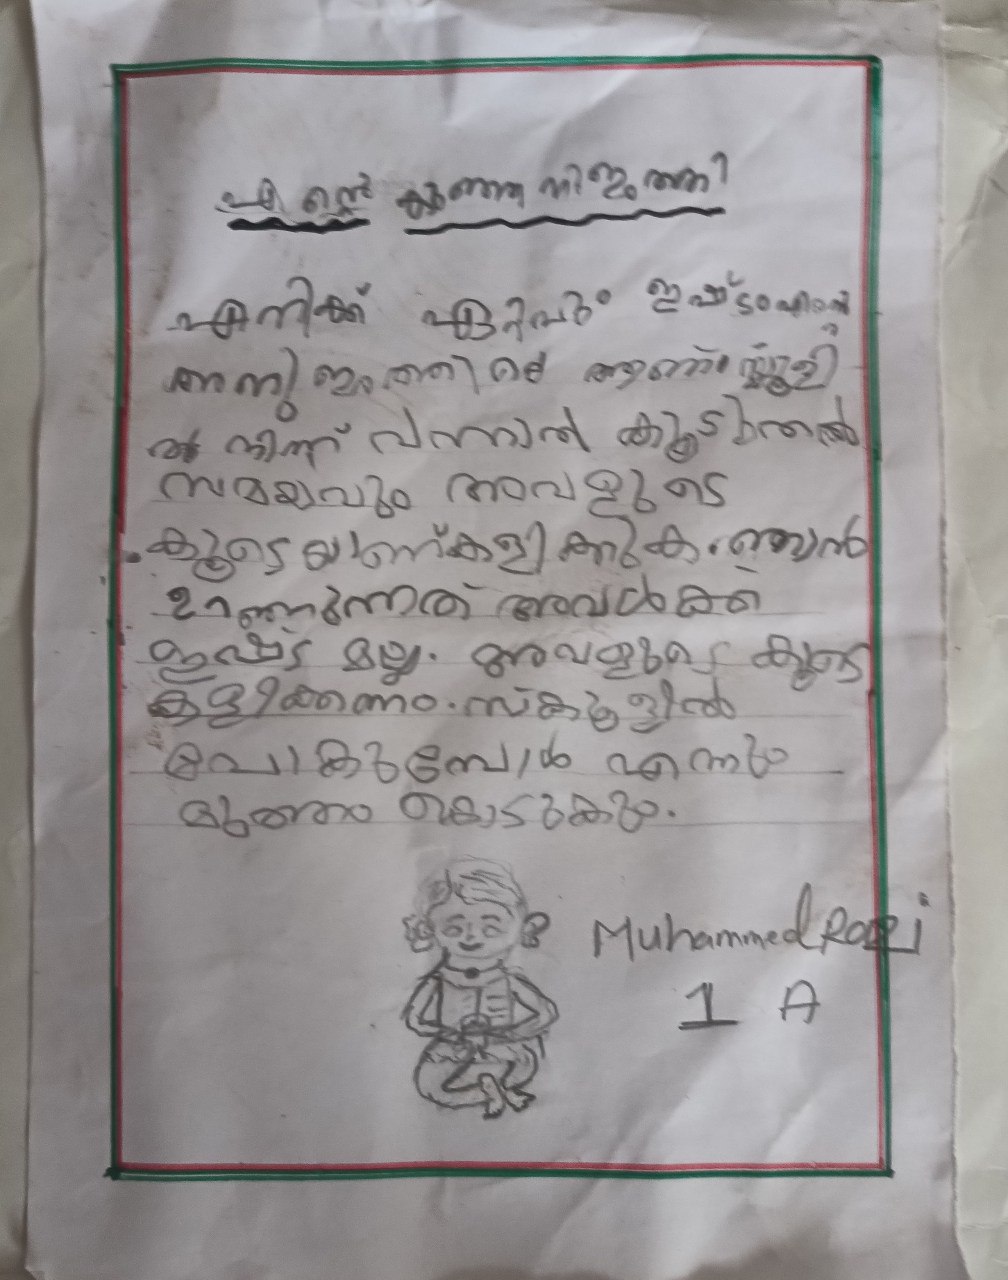 എന്റെ കുഞ്ഞനിയത്തി
എനിക്ക് ഏറ്റവും ഇഷ്ടം എന്റെ
അനുജത്തിയെ ആണ് സ്കൂളി
ൽ നിന്ന് വന്നാൽ കൂടുതൽ
സമയവും അവളുടെ
കൂടെയാണ് കളിക്കുക. ഞാൻ
ഉറങ്ങുന്നത് അവൾക്ക്
ഇഷ്ട മല്ല. അവളുടെ കൂടെ
കളിക്കണം. സ്കൂളിൽ
പോകുമ്പോൾ എന്നും
മുത്തം കൊടുകും.
Muhammed Razi
1 A